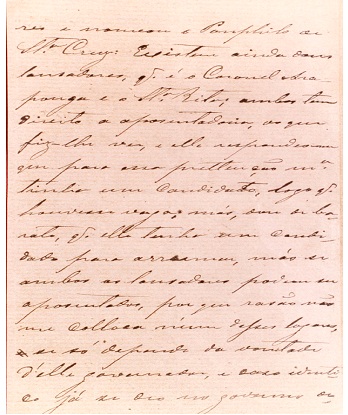 res e nomeou a Pamphilo de
Sta. Cruz. Existem ainda dous
lansadores, q. é o Coronel Ara
ponga e o Sta. Rita, ambos tem
direito a aposentadoria, ao que
fiz lhe ver, e elle respondeo-me
que para essa pretenção
tinha um candidato, logo q.
houvesse vaga; mas,
q. elle tenha um candi
dato para arrumar, más se
ambos os lansadores podem ser
aposentados, por que rasão não
me colloca n'um desses lugares,
se só depende da vontade
d'elle governador, e caso identi
co já se deo no governo